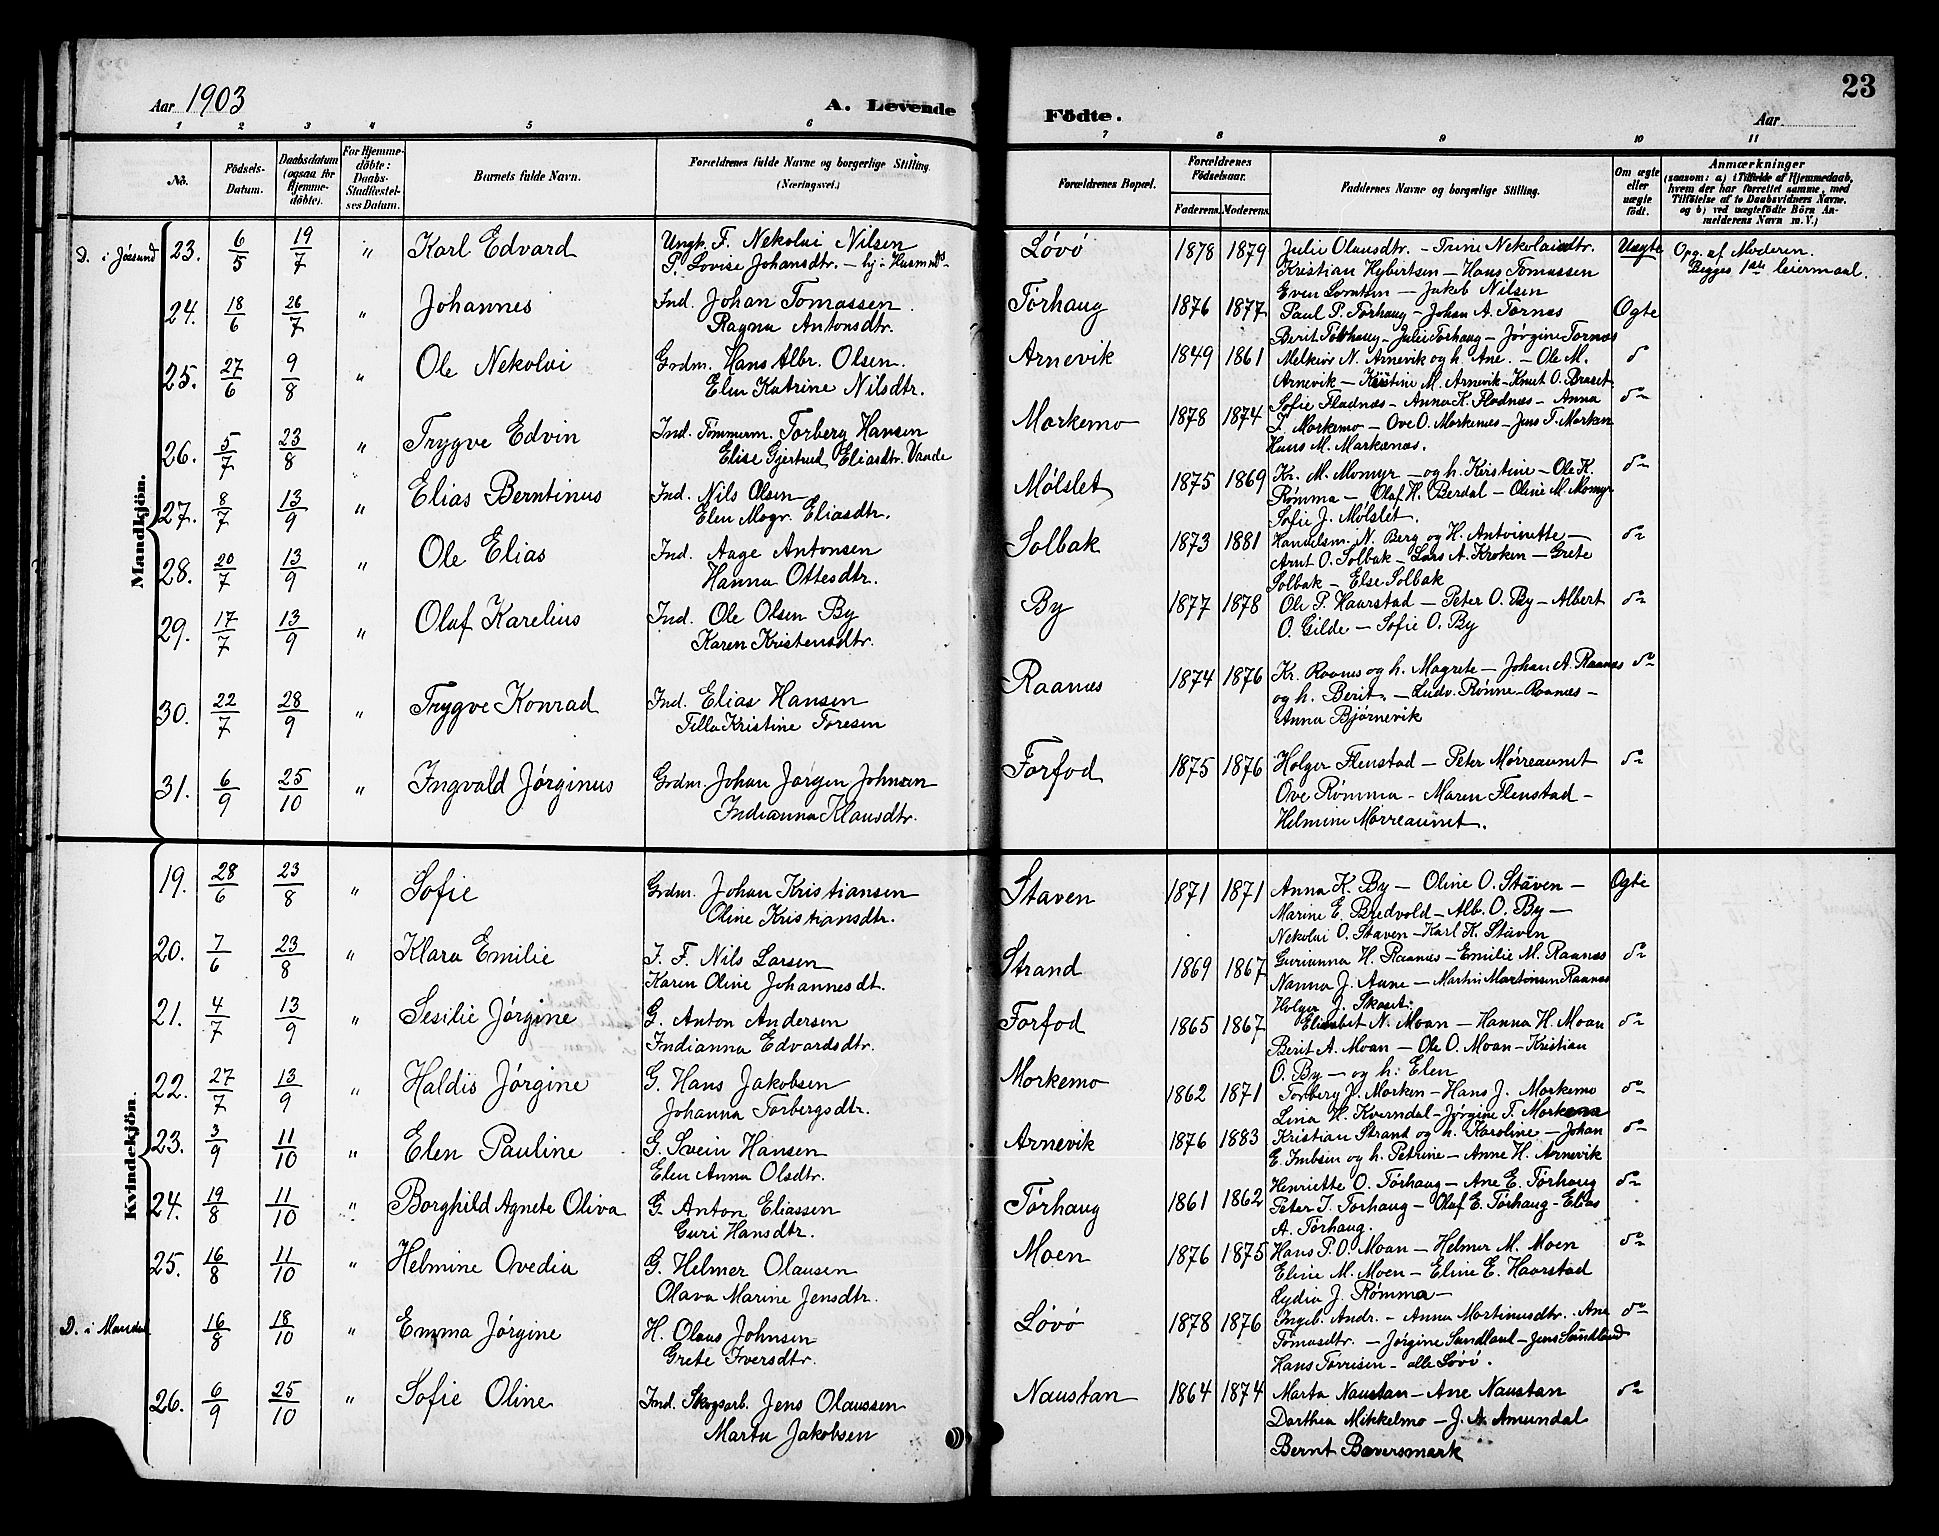 Aar 1903
A. Levende
Födte.
Aar
23
1 2 3 4 5 6 7 8 9 10 11
No.
Födsels-
Datum.
Daabsdatum
(ogsaa for
Hjemme-
döbte).
For Hjemme-
döbte:
Daabs-
Stadfæstel-
ses Datum.
Barnets fulde Navn.
Forældrenes fulde Navne og borgerlige Stilling.
(Næringsvei.)
Forældrenes Bopæl.
Forældrenes
Födselsaar.
Faderens. Moderens.
Faddernes Navne og borgerlige Stilling.
Om ægte
eller
uægte
födt.
Anmærkninger
(saasom: a) i Tilfælde af Hjemmedaab,
hvem der har forrettet samme, med
Tilföielse af to Daabsvidners Navne.
og b) ved uægtefödte Börn An-
melderens Navn m. V.)
Mandkjön.
D. i Jøssund 23. 6/5 19/7 " Karl Edvard
Ungk. F. Nekolai Nilsen
P. Lovise Johansdtr. – hj: Husmds
Løvø 1878 1879
Julie Olausdtr. – Trine Nekolaidtr.
Kristian Hybertsen – Hans Tomassen
Even Lorntsen – Jakob Nilsen
Uægte
Opg. af Moderen.
Begges 1ste leiermaal.
24. 18/6 26/7 " Johannes
Ind. Johan Tomassen
Ragna Antonsdtr.
Tørhaug 1876 1877
Paul P. Tørhaug – Johan A. Tornæs
Berit Tørhaug – Julie Tørhaug – Jørgine Tornæs
Ægte
25. 27/6 9/8 " Ole Nekolai
Grdm. Hans Albr. Olsen.
Elen Katrine Nilsdtr.
Arnevik 1849 1861
Melkior N. Arnevik og h. Ane. – Ole M.
Arnevik – Kristine M. Arnevik – Knut O. Braset.
do
26. 5/7 23/8 " Trygve Edvin
Ind. Tømmerm. Torberg Hansen
Elise Gjertrud Eliasdtr. Vaade
Morkemo 1878 1874
Sofie Fladnæs – Anna K. Fladnæs – Anna
J. Morkemo – Ove O. Morkenæs – Jens T. Morken
Hans M. Markænæs.
do
27. 8/7 13/9 " Elias Berntinus
Ind. Nils Olsen
Elen Magr. Eliasdtr.
Mølslet 1875 1869
Kr. M. Momyr – og h. Kristine – Ole K.
Rømma – Olaf H. Berdal – Oline M. Momyr
Sofie J. Mølslet.
do
28. 20/7 13/9 " Ole Elias
Ind. Aage Antonsen
Hanna Ottesdtr.
Solbak 1873 1881
Handelsm. N. Berg og H. Antoinette –
Arnt O. Solbak – Lars A. Kroken – Grete
Solbak – Else Solbak
do
29. 17/7 13/9 " Olaf Karelius
Ind. Ole Olsen By
Karen Kristensdtr.
By 1877 1878
Ole P. Haarstad – Peter O. By – Albert
O. Gilde – Sofie O. By
do
30. 22/7 28/9 " Trygve Konrad
Ind. Elias Hansen
Tilla Kristine Toresen
Raanæs 1874 1876
Kr. Raanes og h. Magrete – Johan A. Raanæs
og h. Berit – Ludv. Rønne – Raanæs –
Anna Bjørnevik
do
31. 6/9 25/10 " Ingvald Jørginus
Grdm. Johan Jørgen Johnsen
Indianna Klausdtr.
Forfod 1875 1876
Holger Flenstad – Peter Mørreaunet
Ove Rømma – Maren Flenstad –
Helmine Mørreaunet.
do
Kvindekjön.
19. 28/6 23/8 " Sofie
Grdm. Johan Kristiansen
Oline Kristiansdtr.
Staven 1871 1871
Anna K. By – Oline O. Staven –
Marine E. Bredvold – Alb. O. By –
Nekolai O. Staven – Karl K. Staven
Ægte
20. 7/6 23/8 " Klara Emilie
I. F. Nils Larsen
Karen Oline Johannesdt.
Strand 1869 1867
Gurianna H. Raanes – Emilie M. Raanæs
Nanna J. Aune – Martin Martinsen Raanæs
Holger J. Skaset:
do
21. 4/7 13/9 " Sesilie Jørgine
G. Anton Andersen
Indianna Edvardsdtr.
Forfod 1865 1867
Elisabet N. Moan – Hanna H. Moan
Berit A. Moan – Ole O. Moan – Kristian
O. By – og h: Elen
do
22. 27/7 13/9 " Haldis Jørgine
G. Hans Jakobsen
Johanna Torbergsdtr.
Morkemo 1862 1871
Torberg J. Morken – Hans J. Morkemo
Lina H. Kverndal – Jørgine T. Morkemo
do
23. 3/9 11/10 " Elen Pauline
G. Svein Hansen
Elen Anna Olsdtr.
Arnevik 1876 1883
Kristian Strand og h. Karoline – Johan
E. Imbsen og h. Petrine – Anne H. Arnevik
do
24. 19/8 11/10 " Borghild Agnete Oliva
G. Anton Eliassen
Guri Hansdtr.
Tørhaug 1861 1862
Henriette O. Tørhaug – Ane E. Tørhaug
Peter J. Torhaug – Olaf E. Tørhaug – Elias
A. Tørhaug.
do
25. 16/8 11/10 " Helmine Ovedia
G. Helmer Olausen
Olava Marine Jensdtr.
Moen 1876 1875
Hans P. O. Moan – Helmer M. Moen
Eline M. Moen – Eline E. Haarstad
Lydia J. Rømma –
do
D. i Mandal 16/8 18/10 " Emma Jørgine
H. Olaus Johnsen
Grete Iversdtr.
Løvø 1878 1876
Ingeb. Andr. – Anna Martinusdtr. Ane
Tomasdtr. – Jørgine Sundland – Jens Sundland
Hans Tørrisen – alle Løvø.
do
26. 6/9 25/10 " Sofie Oline
Ind. Skogsarb. Jens Olaussen
Marta Jakobsen
Naustan 1864 1874
Marta Naustan – Ane Naustan
Dorthea Mikkelmo – J. A. Amundal
Bernt Bæversmark
do